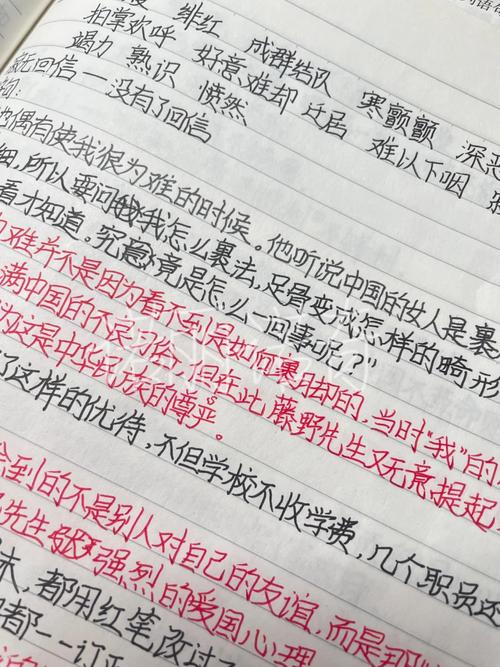 绯红 成群结队
拍掌欢呼 好意难却 寒颤颤 深恶
竭力 熟识 愤然 迁居 难以下咽
杳无回信——没有了回信
也偶有使我很为难的时候。他听说中国的女人是裹
细,所以要问我怎么裹法,足骨变成怎样的畸形
看才知道。究竟是怎么一回事呢?”
为难并不是因为看不到是如何裹脚的,当时“我”的
满中国的不良习俗,但在此,藤野先生又无意提起
为这是中华民族的尊严。
了这样的优待,不但学校不收学费,几个职员还
到的不是别人对自己的友谊,而是那
先生 强烈的爱国心理
末,都用红笔改过
都一一订正